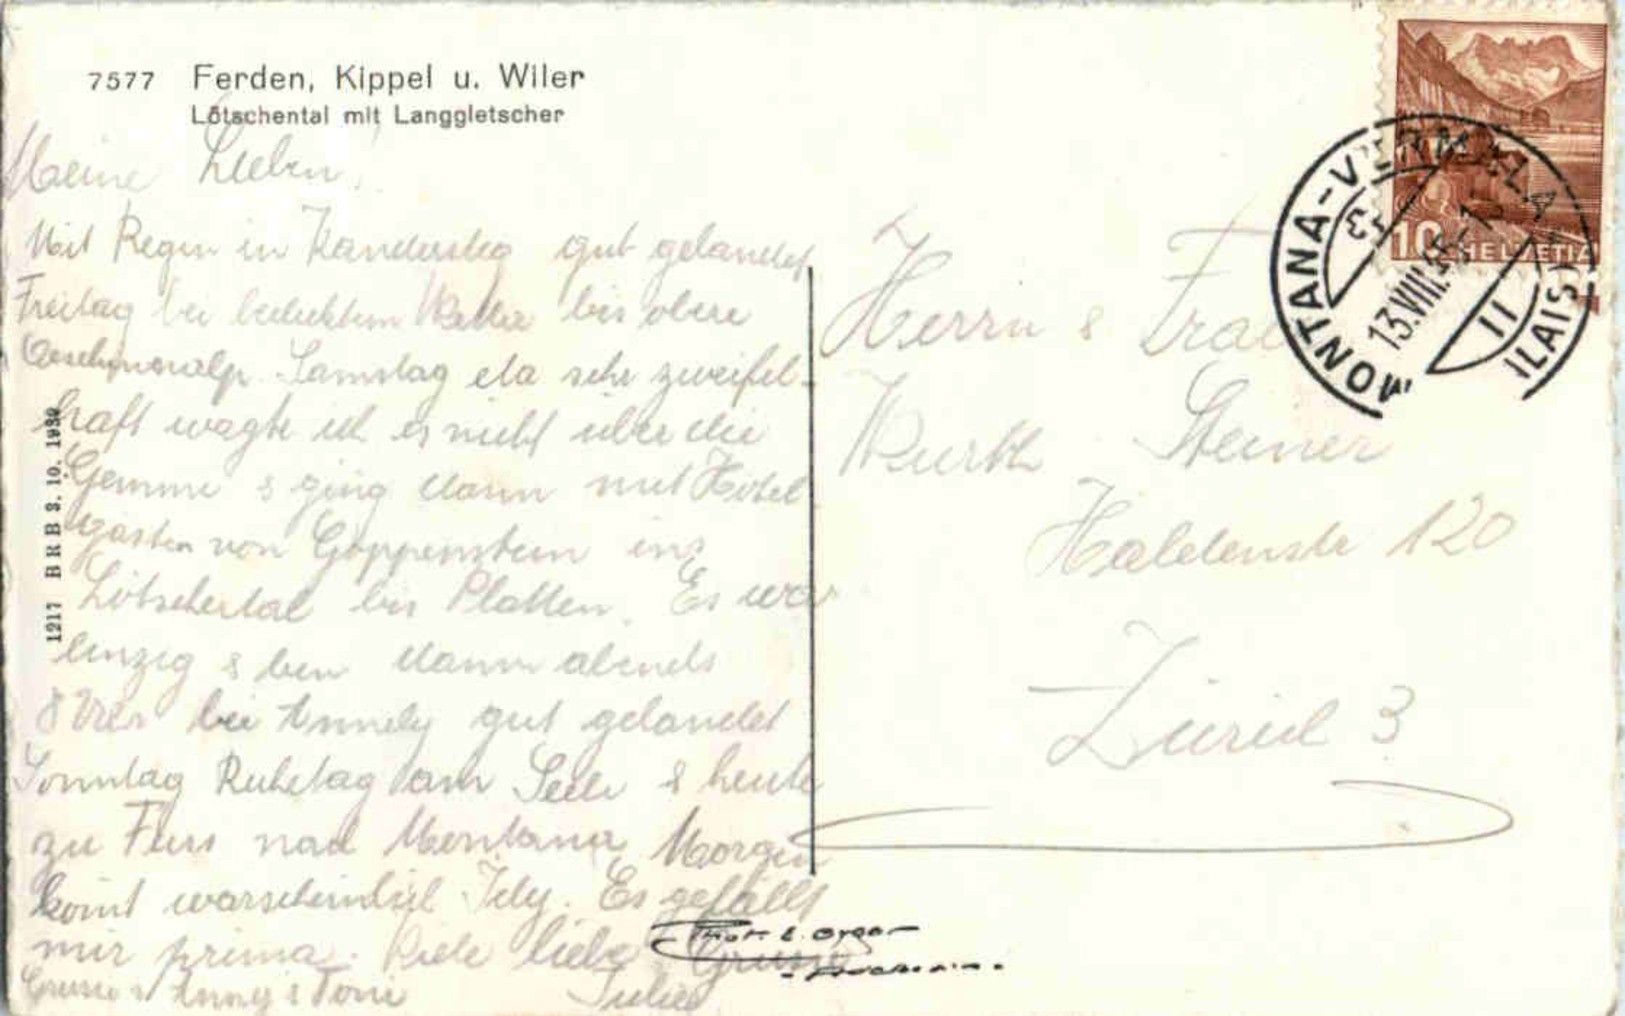 7577 Ferden, Kippel u. Wiler
Lötschental mit Langgletscher
Meine Lieben!
Mit Regen in Kandersteg gut gelandet
Freitag bei bedecktem Wetter bis obere
Samstag da sehr zweifel-
haft wagte ich es nicht über die
Gemmi & ging dann mit Hotel
gästen von Goppenstein ins
Lötschental bis Platten. Es war
& bin dann abends
8 Uhr bei Annely gut gelandet
Sonntag Ruhetag am See & heute
zu Fuss nach Montana Morgen
komt warscheinlich Idy. Es gefällt
mir prima. Viele liebe Grüsse
Grüsse v. Anny & Toni Julie
1217 BRB 3. 10. 1939
HELVETIA
10
MONTANA-VERMALA
13.VIII.
11
Herrn & Frau
Wurth Steiner
Haldenstr 120
Zürich 3
Phot. E. Gyger